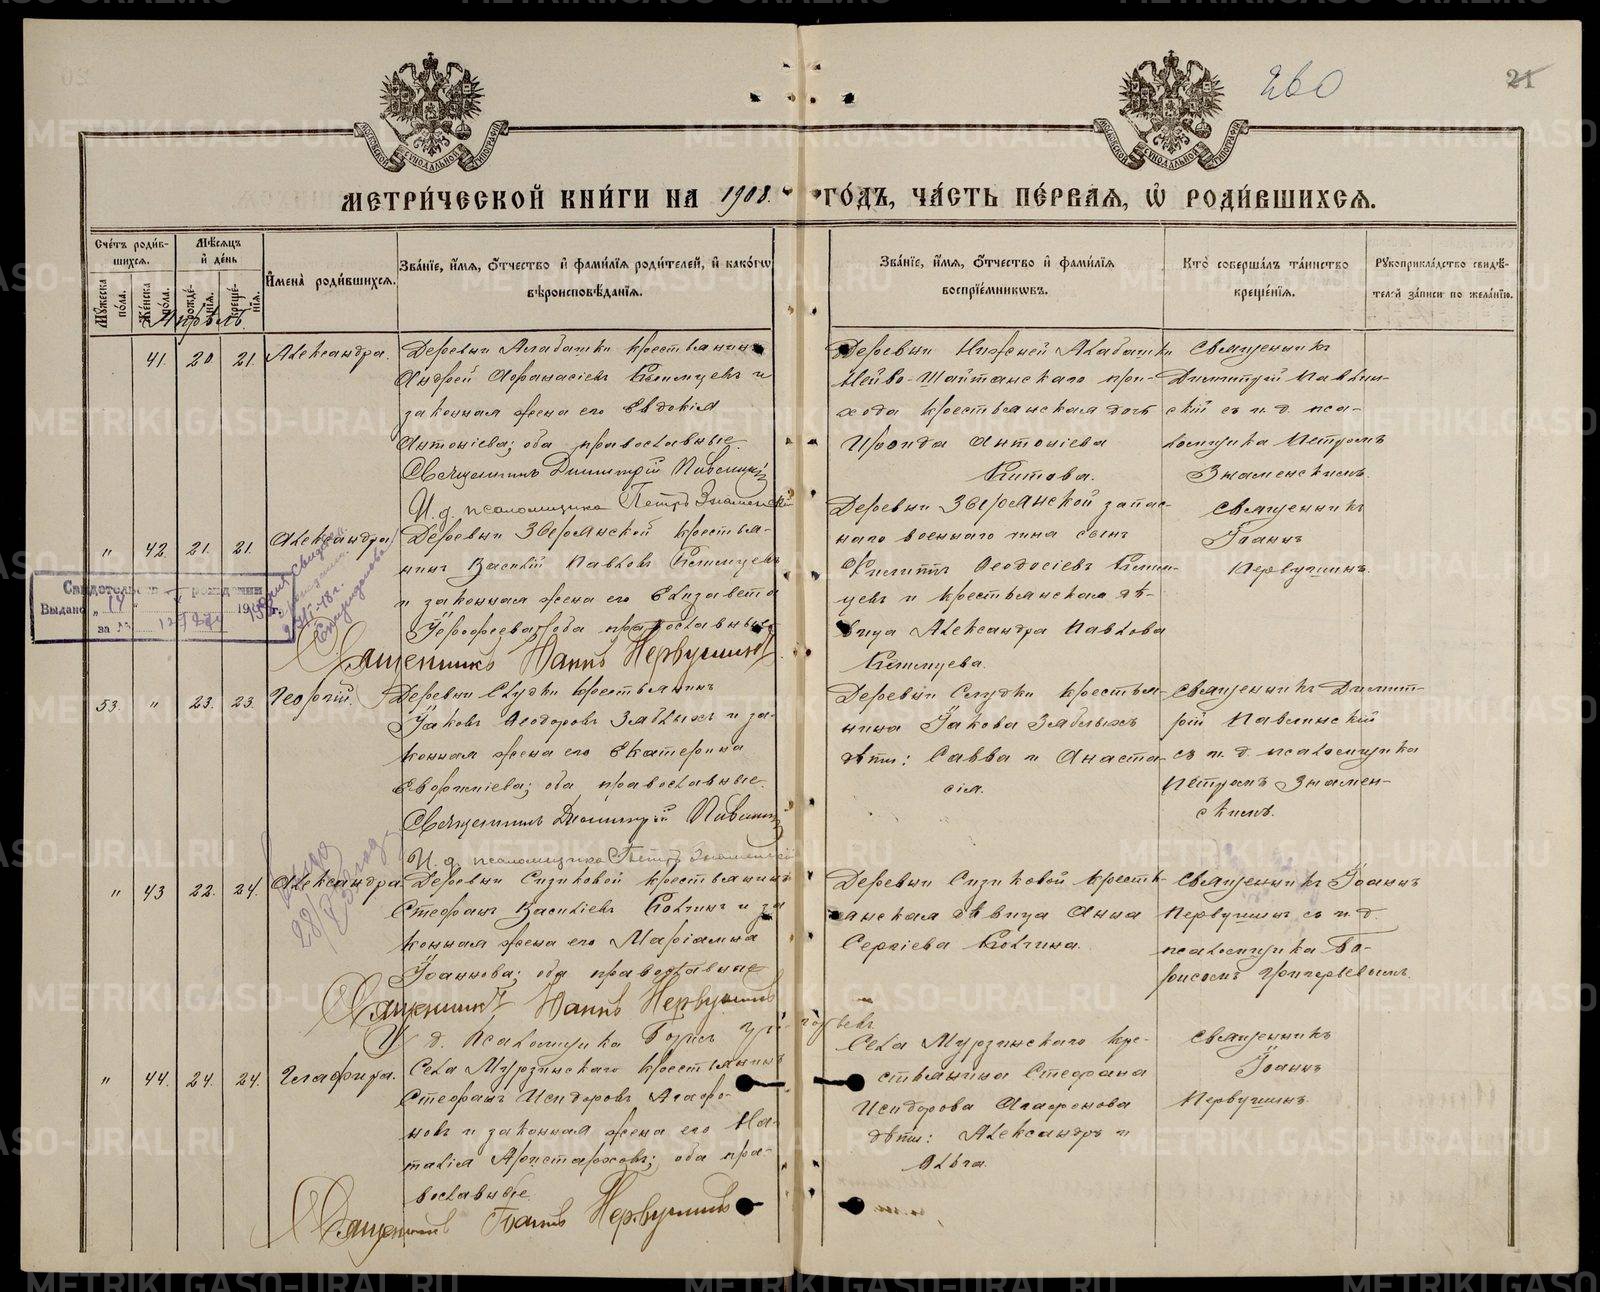 260
21
МЕТРИ́ЧЕСКОЙ КНИ́ГИ НА 1908. ГО́ДЪ, ЧА́СТЬ ПЕ́РВАѦ, Ѡ҆ РОДИ́ВШИХСѦ.
Сче́тъ роди́вшихсѧ.
Мꙋ́жеска по́ла.
Же́нска по́ла.
Мѣ́сѧцъ и҆ де́нь
рожде́нїѧ.
креще́нїѧ.
И҆мена̀ роди́вшихсѧ.
Зва́нїе, и҆́мѧ, ѻ҆́тчество и҆ фами́лїѧ роди́телей, и҆ како́гѡ
вѣроисповѣ́данїѧ.
Зва́нїе, и҆́мѧ, ѻ҆́тчество и҆ фами́лїѧ
воспрїе́мникѡвъ.
Кто̀ соверша́лъ та́инство
креще́нїѧ.
Рꙋкоприкла́дство свидѣ́-
телей за́писи по жела́нїю.
Апрѣль
41. 20 21. Александра.
Деревни Алабашки крестьянинъ
Андрей Афанасіевъ Кстинцевъ и
законная жена его Евдокія
Антоніева; оба православные
Священникъ Димитрій Павлинскій
И. д. псаломщика Петръ Знаменскій
Деревни Нижней Алабашки
Нейво-Шайтанскаго при-
хода крестьянская дочь
Ираида Антоніева
Китова.
Священникъ
Димитрій Павлин-
скій съ и. д. пса-
ломщика Петромъ
Знаменскимъ.
" 42. 21. 21. Александра
Деревни Зырянской крестья-
нинъ Василій Павловъ
и законная жена его Елизавета
Дорофеева; оба православные
Священникъ Іоаннъ Первушинъ
Деревни Зырянской запас-
наго военнаго чина сынъ
Филиппъ Ѳеодосіевъ
и крестьянская дѣ-
вица Александра Павлова
Священникъ
Іоаннъ
Первушинъ.
Свидѣтельство о рожденіи
Выдано "
за №
53. " 23. 23. Георгій.
Деревни Слудки крестьянинъ
Іаковъ Ѳеодоровъ Зяблыхъ и за-
конная жена его Екатерина
Евфиміева; оба православные.
Священникъ Димитрій Павлинскій
И. д. псаломщика Петръ Знаменскій
Деревни Слудки крестья-
нина Іакова Зяблыхъ
дѣти: Савва и Анаста-
сія.
Священникъ Димит-
рій Павлинскій
съ и. д. псаломщика
Петромъ Знамен-
скимъ.
" 43 22. 24. Александра
Деревни Сизиковой крестьянинъ
Стефанъ Василіевъ Колгинъ и за
конная жена его Маріамна
Іоаннова; оба православные
Священникъ Іоаннъ Первушинъ
И. д. Псаломщика Борисъ Григорьевъ
Деревни Сизиковой кресть-
янская дѣвица Анна
Сергіева Колгина.
Священникъ Іоаннъ
Первушинъ съ и. д.
псаломщика Бо-
рисомъ Григорьевымъ.
" 44. 24. 24. Глафира.
Села Мурзинскаго крестьянинъ
Стефанъ Исидоровъ Агафо-
новъ и законная жена его На-
талія Аристархова; оба пра-
вославные.
Священникъ Іоаннъ Первушинъ
Села Мурзинскаго кре-
стьянина Стефана
Исидорова Агафонова
дѣти: Александръ и
Ольга.
Священникъ
Іоаннъ
Первушинъ.
METRIKI.GASO-URAL.RU